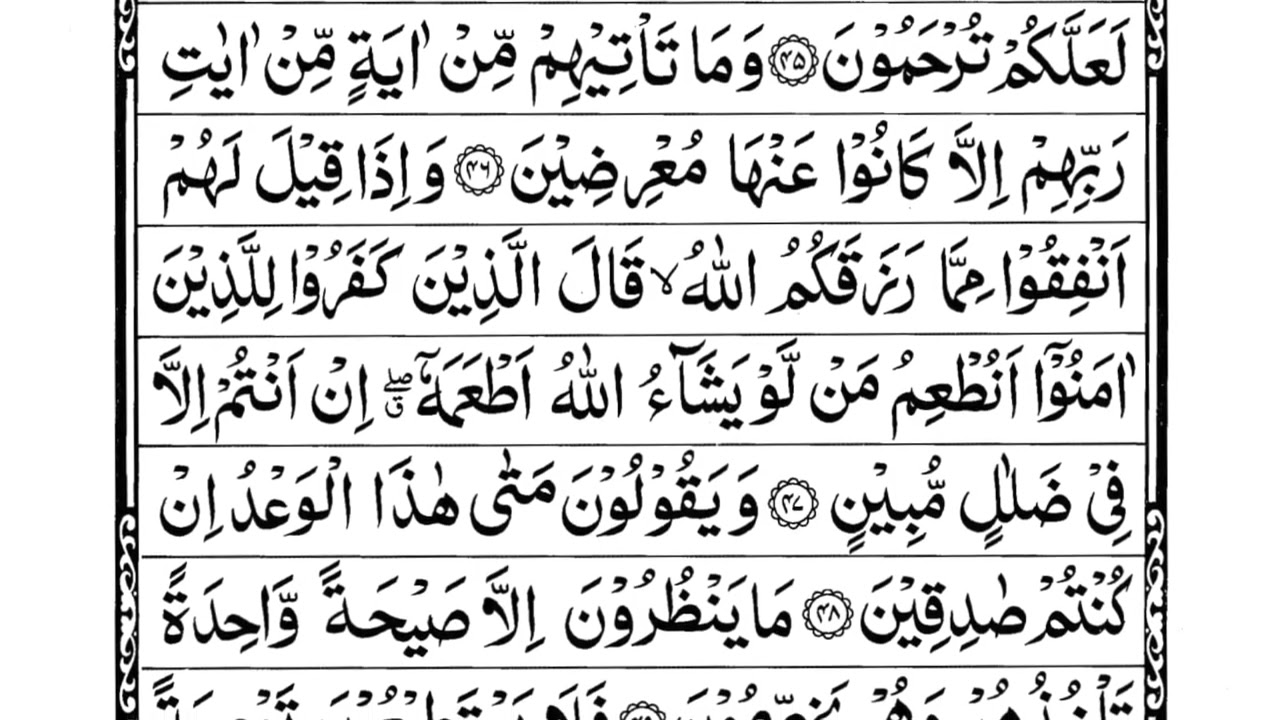 لَعَلَّكُمْ تُرْحَمُوْنَ ﴿۴۵﴾ وَمَا تَاْتِيْهِمْ مِّنْ اٰيَةٍ مِّنْ اٰيٰتِ
رَبِّهِمْ اِلَّا كَانُوْا عَنْهَا مُعْرِضِيْنَ ﴿۴۶﴾ وَاِذَا قِيْلَ لَهُمْ
اَنْفِقُوْا مِمَّا رَزَقَكُمُ اللّٰهُ ۙ قَالَ الَّذِيْنَ كَفَرُوْا لِلَّذِيْنَ
اٰمَنُوْۤا اَنُطْعِمُ مَنْ لَّوْ يَشَآءُ اللّٰهُ اَطْعَمَهٗۤ ۖق اِنْ اَنْتُمْ اِلَّا
فِيْ ضَلٰلٍ مُّبِيْنٍ ﴿۴۷﴾ وَيَقُوْلُوْنَ مَتٰى هٰذَا الْوَعْدُ اِنْ
كُنْتُمْ صٰدِقِيْنَ ﴿۴۸﴾ مَا يَنْظُرُوْنَ اِلَّا صَيْحَةً وَّاحِدَةً